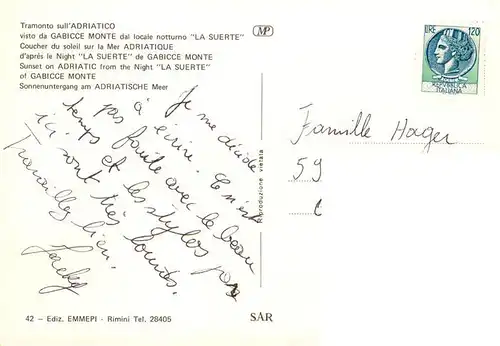 Tramonto sull'ADRIATICO
visto da GABICCE MONTE dal locale notturno "LA SUERTE"
Coucher du soleil sur la Mer ADRIATIQUE
d'après le Night "LA SUERTE" de GABICCE MONTE
Sunset on ADRIATIC from the Night "LA SUERTE"
of GABICCE MONTE
Sonnenuntergang am ADRIATISCHE Meer
MP
LIRE 120
REPVBBLICA
ITALIANA
Je me décide
pas à écrire. C'est
pas faute avec le beau
temps et les stylos
ici sont très lourds.
Travaillez bien.
Jacky
Riproduzione vietata
Famille Hager
59
42 - Ediz. EMMEPI - Rimini Tel. 28405
SAR